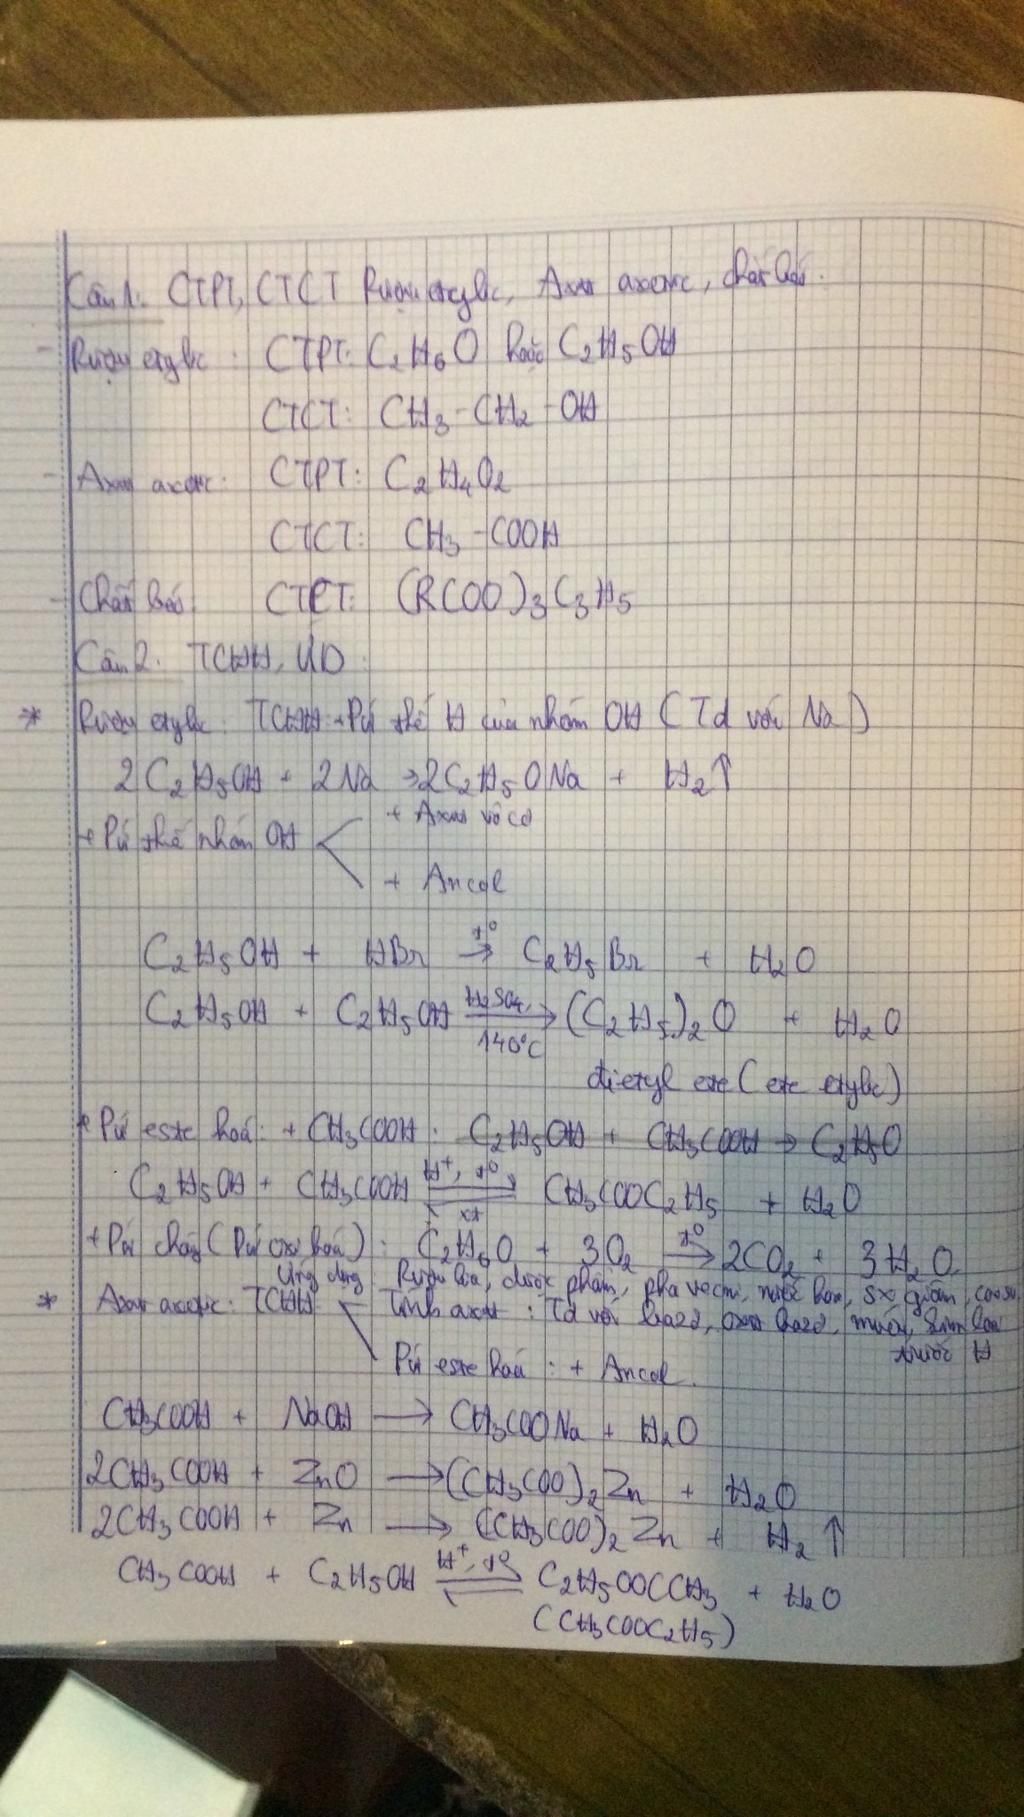 Câu 1: CTPT, CTCT Rượu etylic, Axit axetic, chất béo.
- Rượu etylic: CTPT: C₂H₆O hoặc C₂H₅OH
CTCT: CH₃-CH₂-OH
- Axit axetic: CTPT: C₂H₄O₂
CTCT: CH₃-COOH
- Chất béo: CTCT: (RCOO)₃C₃H₅
Câu 2. TCHH, ƯD.
* Rượu etylic: TCHH + Pứ thế H của nhóm OH (Td với Na)
2C₂H₅OH + 2Na → 2C₂H₅ONa + H₂↑
+ Axit vô cơ
+ Pứ thế nhóm OH
+ Ancol
C₂H₅OH + HBr t⁰→ C₂H₅Br + H₂O
C₂H₅OH + C₂H₅OH H₂SO₄, 140°C→ (C₂H₅)₂O + H₂O
đietyl ete (ete etylic)
+ Pứ este hoá: + CH₃COOH: C₂H₅OH + CH₃COOH → C₂H₅O
C₂H₅OH + CH₃COOH H⁺, t⁰ ⇌ xt CH₃COOC₂H₅ + H₂O
+ Pứ cháy (Pứ oxi hoá): C₂H₆O + 3O₂ t⁰→ 2CO₂ + 3H₂O.
Ứng dụng: Rượu bia, dược phẩm, pha vecni, nước hoa, sx giấm, cao su
* Axit axetic: TCHH Tính axit: Td với bazơ, oxit bazơ, muối, kim loại
trước H
Pứ este hoá: + Ancol.
CH₃COOH + NaOH → CH₃COONa + H₂O
2CH₃COOH + ZnO → (CH₃COO)₂Zn + H₂O
2CH₃COOH + Zn → (CH₃COO)₂Zn + H₂↑
CH₃COOH + C₂H₅OH H⁺, t⁰ ⇌ C₂H₅OOCCH₃ + H₂O
(CH₃COOC₂H₅)